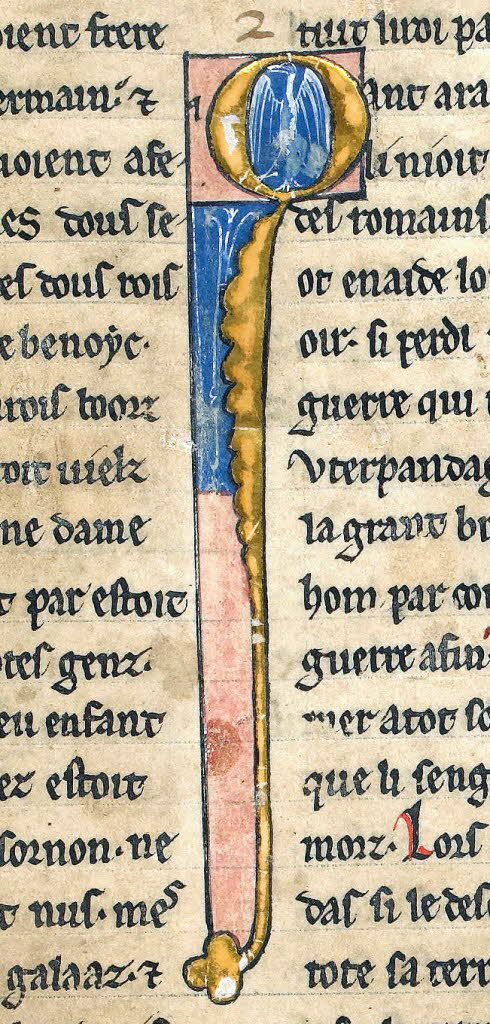 oient frere
ermain. ⁊
uoient afe-
es dous se-
es dous rois
e benoÿc.
rois boorz
toit uielz
ne dame
t par estoit
genz.
eu enfant
ez estoit
sornon. ne
t nus. mes
galaaz. ⁊
2
li roi pa
Qant ara
del romains
ot en aide lo
oir. si perdi
guerre qui
Vterpandag
la grant br
hom par con
guerre afin
mer a tot so
que li seng
morz. Lors
das si le des
tote sa terr